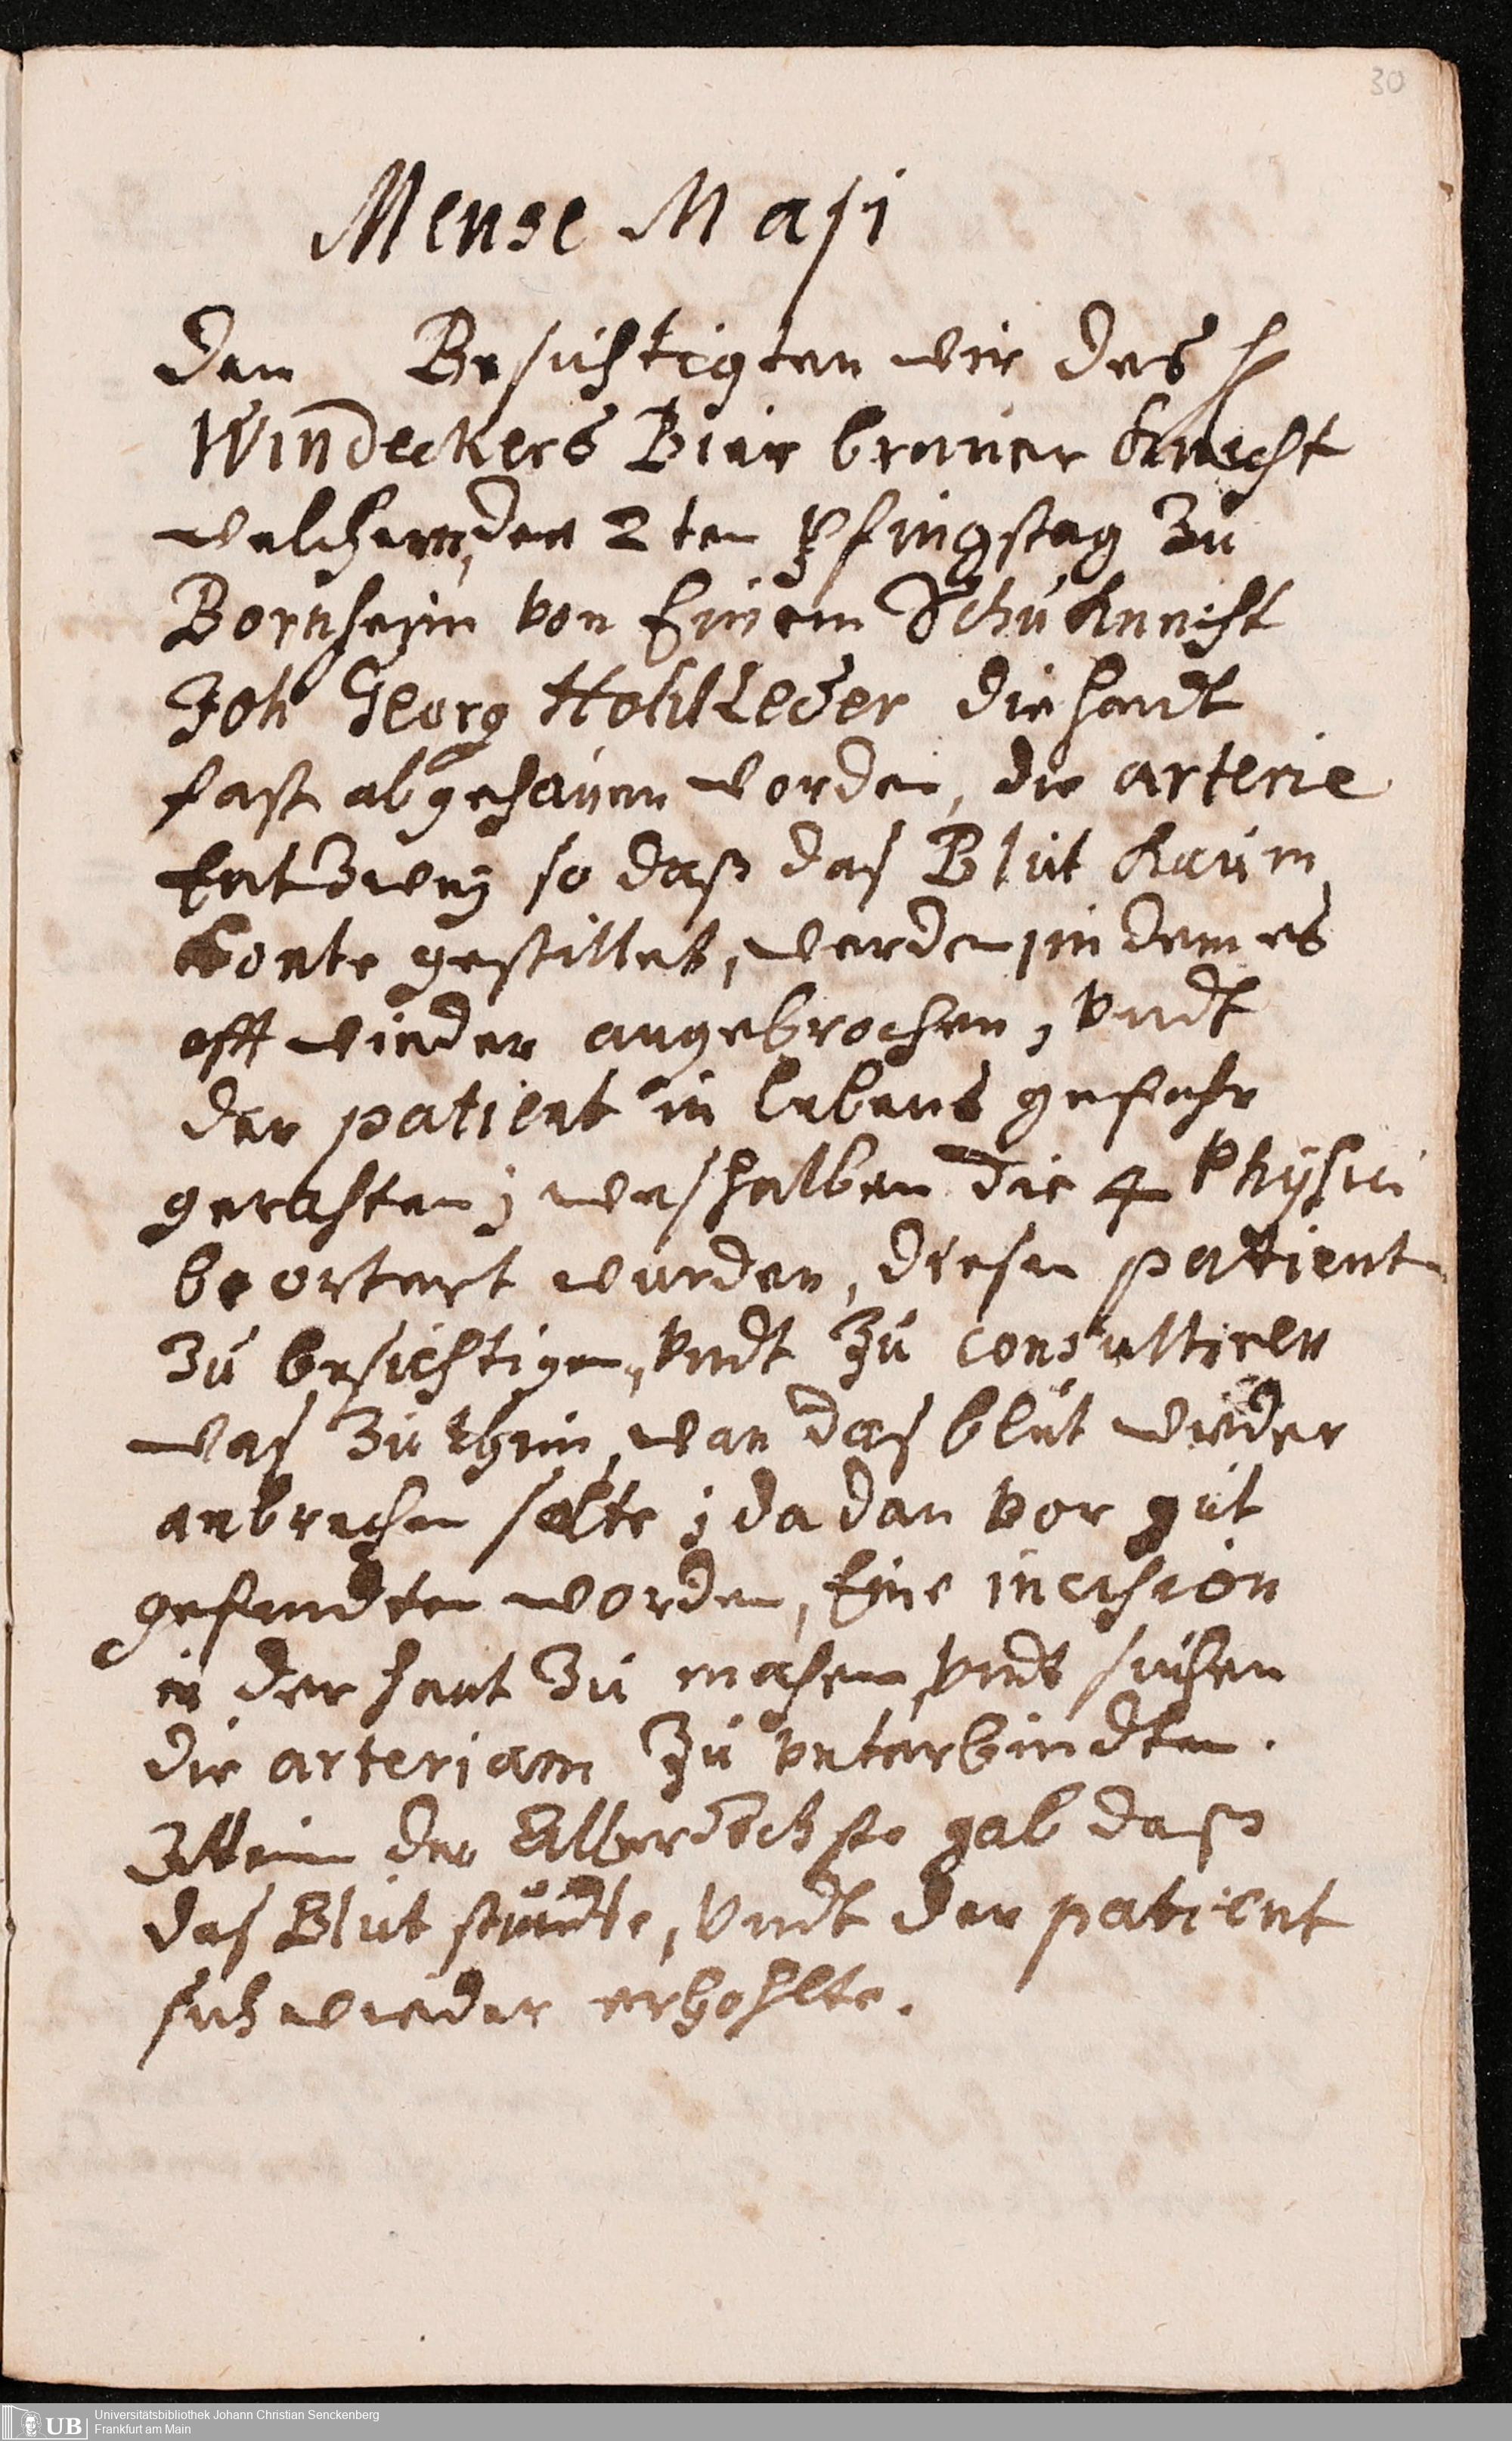 30
Mense Maji
den Besichtigten wir des H
Windeckers Bier brauer knecht
welchem, den 2ten Pfingstag zu
Bornheim von Einem Schuknecht
Joh Georg Hohlleder die handt
fast abgehauen worden, die arterie
Entzwey so daß das Blut kaum
konte gestillet, werden, in dem es
offt wieder angebrochen, vndt
der patient in lebens gefahr
gerahten; weshalben die 4 Physici
beortert wurden, diesen patienten
zu besichtigen, vndt zu consultiren
was zu thun, wan das blut wider
anbrechen solte; da dan vor gut
gefundten worden, Eine incision
in der haut zu machen, vndt suchen
die arteriam zu vnterbindten.
Allein der Allerhöchste gab daß
das Blut stundte, vndt der patient
sich wieder erhohlte.
UB
Universitätsbibliothek Johann Christian Senckenberg
Frankfurt am Main